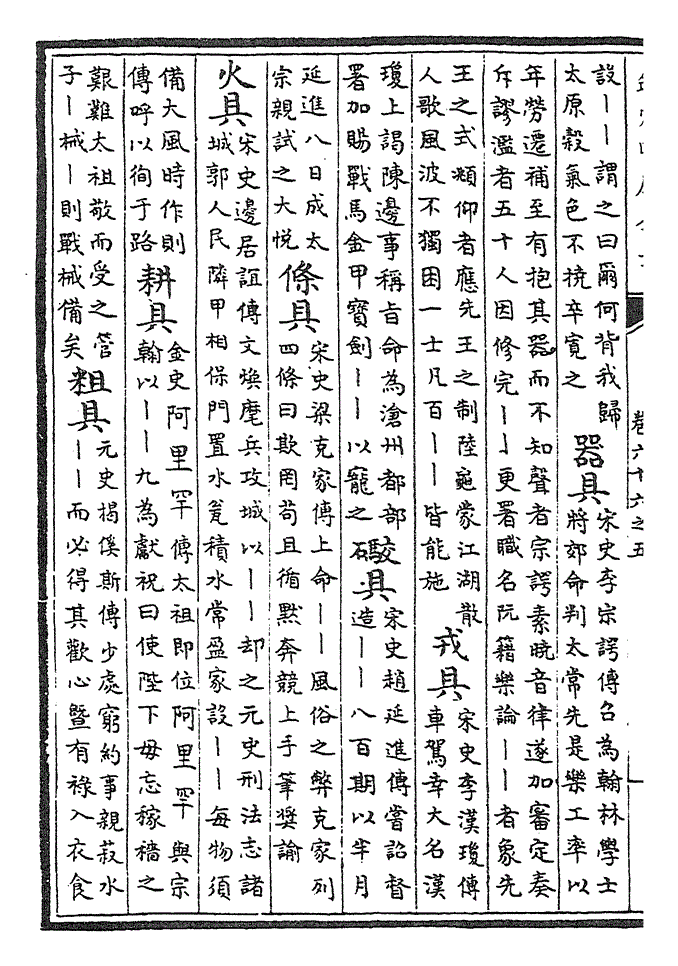 設丨丨謂之曰爾何背我歸
太原穀氣色不撓卒寬之
器具
宋史李宗諤傳召為翰林學士
將郊命判太常先是樂工率以
年勞遷補至有抱其器而不知聲者宗諤素曉音律遂加審定奏
斥謬濫者五十人因修完丨丨更署職名阮籍樂論丨丨者象先
王之式頫仰者應先王之制陸龜蒙江湖散
人歌風波不獨困一士凡百丨丨皆能施
戎具
宋史李漢瓊傳
車駕幸大名漢
瓊上謁陳邊事稱旨命為滄州都部
署加賜戰馬金甲寶劍丨丨以寵之
礮具
宋史趙延進傳嘗詔督
造丨丨八百期以半月
延進八日成太
宗親試之大悅
條具
宋史梁克家傳上命丨丨風俗之弊克家列
四條曰欺罔苟且循默奔競上手筆奬諭
火具
宋史邊居誼傳文煥麾兵攻城以丨丨却之元史刑法志諸
城郭人民隣甲相保門置水瓮積水常盈家設丨丨每物須
備大風時作則
傳呼以徇于路
耕具
金史阿里罕傳太祖即位阿里罕與宗
翰以丨丨九為獻祝曰使陛下毋忘稼穡之
艱難太祖敬而受之管
子丨械丨則戰械備矣
粗具
元史揭傒斯傳少處窮約事親菽水
丨丨而必得其歡心暨有祿入衣食
卷六十六之五